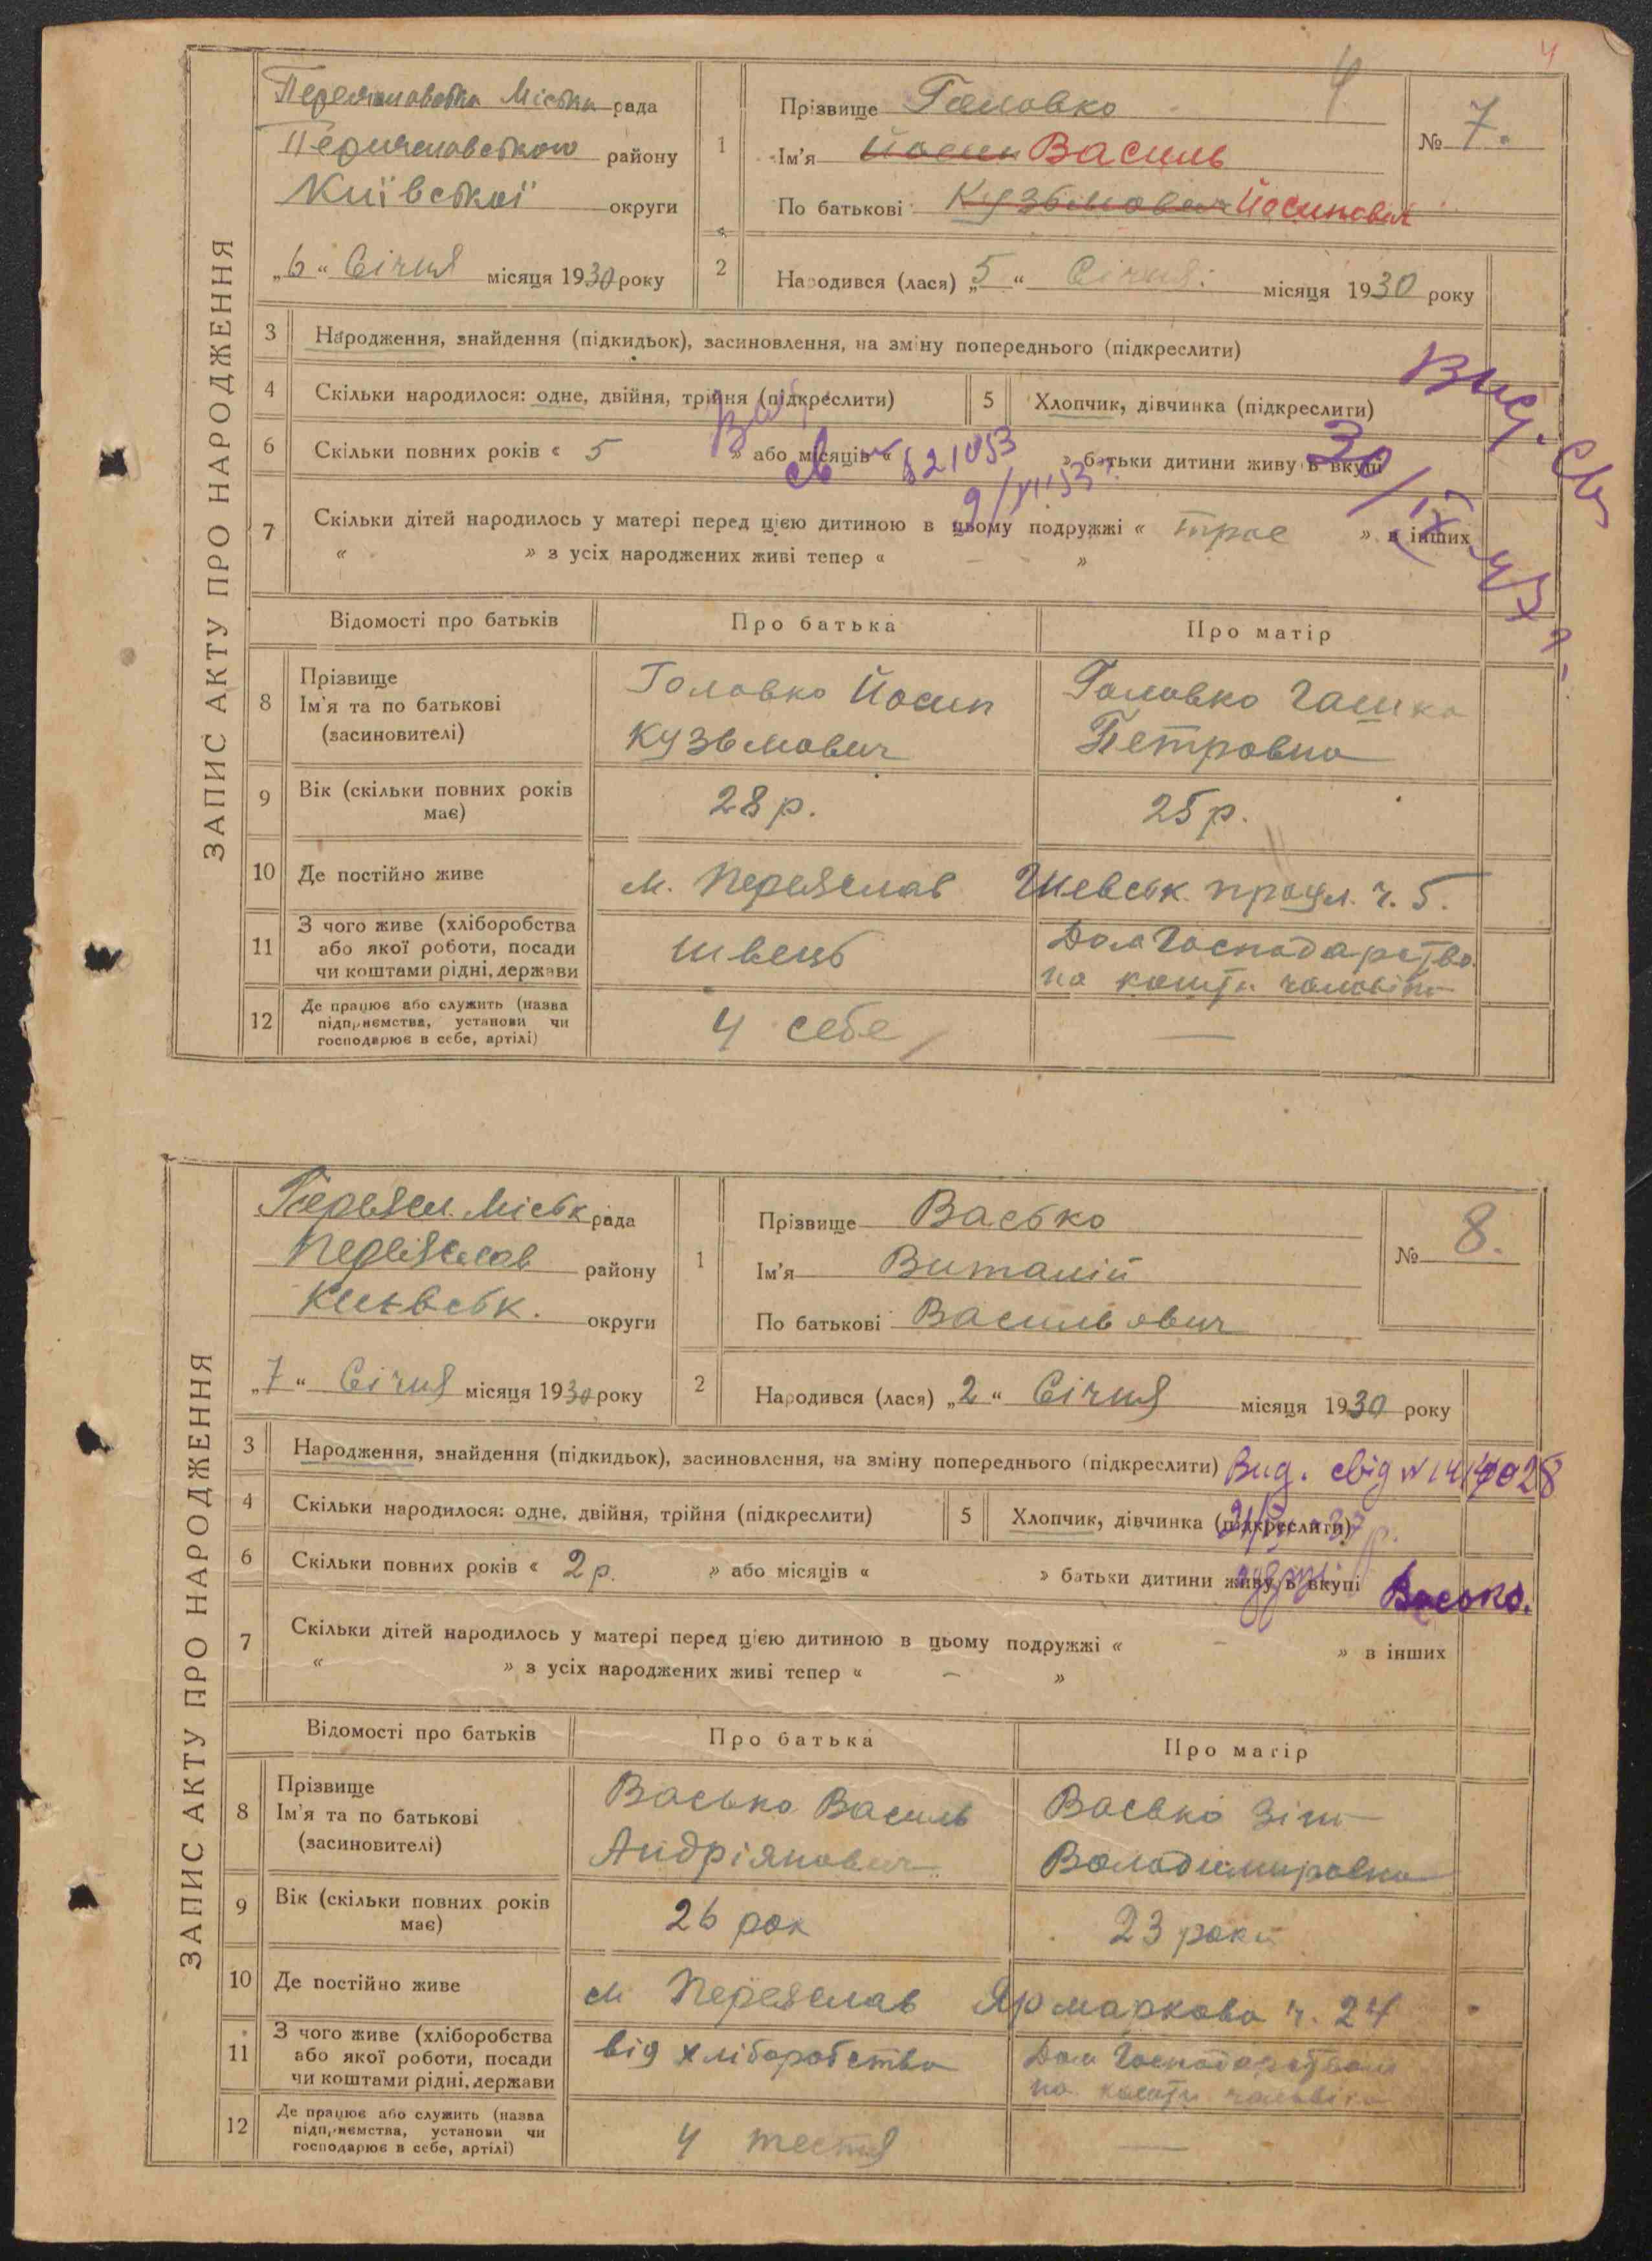 4
4
ЗАПИС АКТУ ПРО НАРОДЖЕННЯ
Міська рада
району
Київської округи
„6“ Січня місяця 1930 року
1
Прізвище Головко
Ім'я Йосип Василь
По батькові Кузьмович Йосипович
№ 7.
2
Народився (лася) „5“ Січня місяця 1930 року
3 Народження, знайдення (підкидьок), засиновлення, на зміну попереднього (підкреслити)
4 Скільки народилося: одне, двійня, трійня (підкреслити)
5 Хлопчик, дівчинка (підкреслити)
6 Скільки повних років « 5 » або місяців « » батьки дитини живуть вкупі
7 Скільки дітей народилось у матері перед цією дитиною в цьому подружжі « троє » в інших
« » з усіх народжених живі тепер « - - »
Відомості про батьків Про батька Про матір
8 Прізвище
Ім'я та по батькові
(засиновителі)
Головко Йосип
Кузьмович
Головко Гашка
Петровна
9 Вік (скільки повних років
має)
28 р.
25 р.
10 Де постійно живе
м. Переяслав Шевськ. ч. 5.
11 З чого живе (хліборобства
або якої роботи, посади
чи коштами рідні, держави
швець
Дом Господарство
на кошти чоловіка
12 Де працює або служить (назва
підприємства, установи чи
господарює в себе, артілі)
У себе
—
ЗАПИС АКТУ ПРО НАРОДЖЕННЯ
Переясл. Міськ рада
Переяслав району
округи
„7“ Січня місяця 1930 року
1
Прізвище Васько
Ім'я Виталій
По батькові Васильович
№ 8.
2
Народився (лася) „2“ Січня місяця 1930 року
3 Народження, знайдення (підкидьок), засиновлення, на зміну попереднього (підкреслити)
Вид. свід
4 Скільки народилося: одне, двійня, трійня (підкреслити)
5 Хлопчик, дівчинка (підкреслити)
6 Скільки повних років « 2 р. » або місяців « » батьки дитини живуть вкупі
Васько.
7 Скільки дітей народилось у матері перед цією дитиною в цьому подружжі « - » в інших
« » з усіх народжених живі тепер « - »
Відомості про батьків Про батька Про матір
8 Прізвище
Ім'я та по батькові
(засиновителі)
Васько Василь
Андріянович
Васько Зіна
Володимировна
9 Вік (скільки повних років
має)
26 рок
23 роки
10 Де постійно живе
м Переяслав Ярмаркова ч. 24
11 З чого живе (хліборобства
або якої роботи, посади
чи коштами рідні, держави
від хліборобства
Дом Господарством
на кошти чоловіка
12 Де працює або служить (назва
підприємства, установи чи
господарює в себе, артілі)
У тестя
—